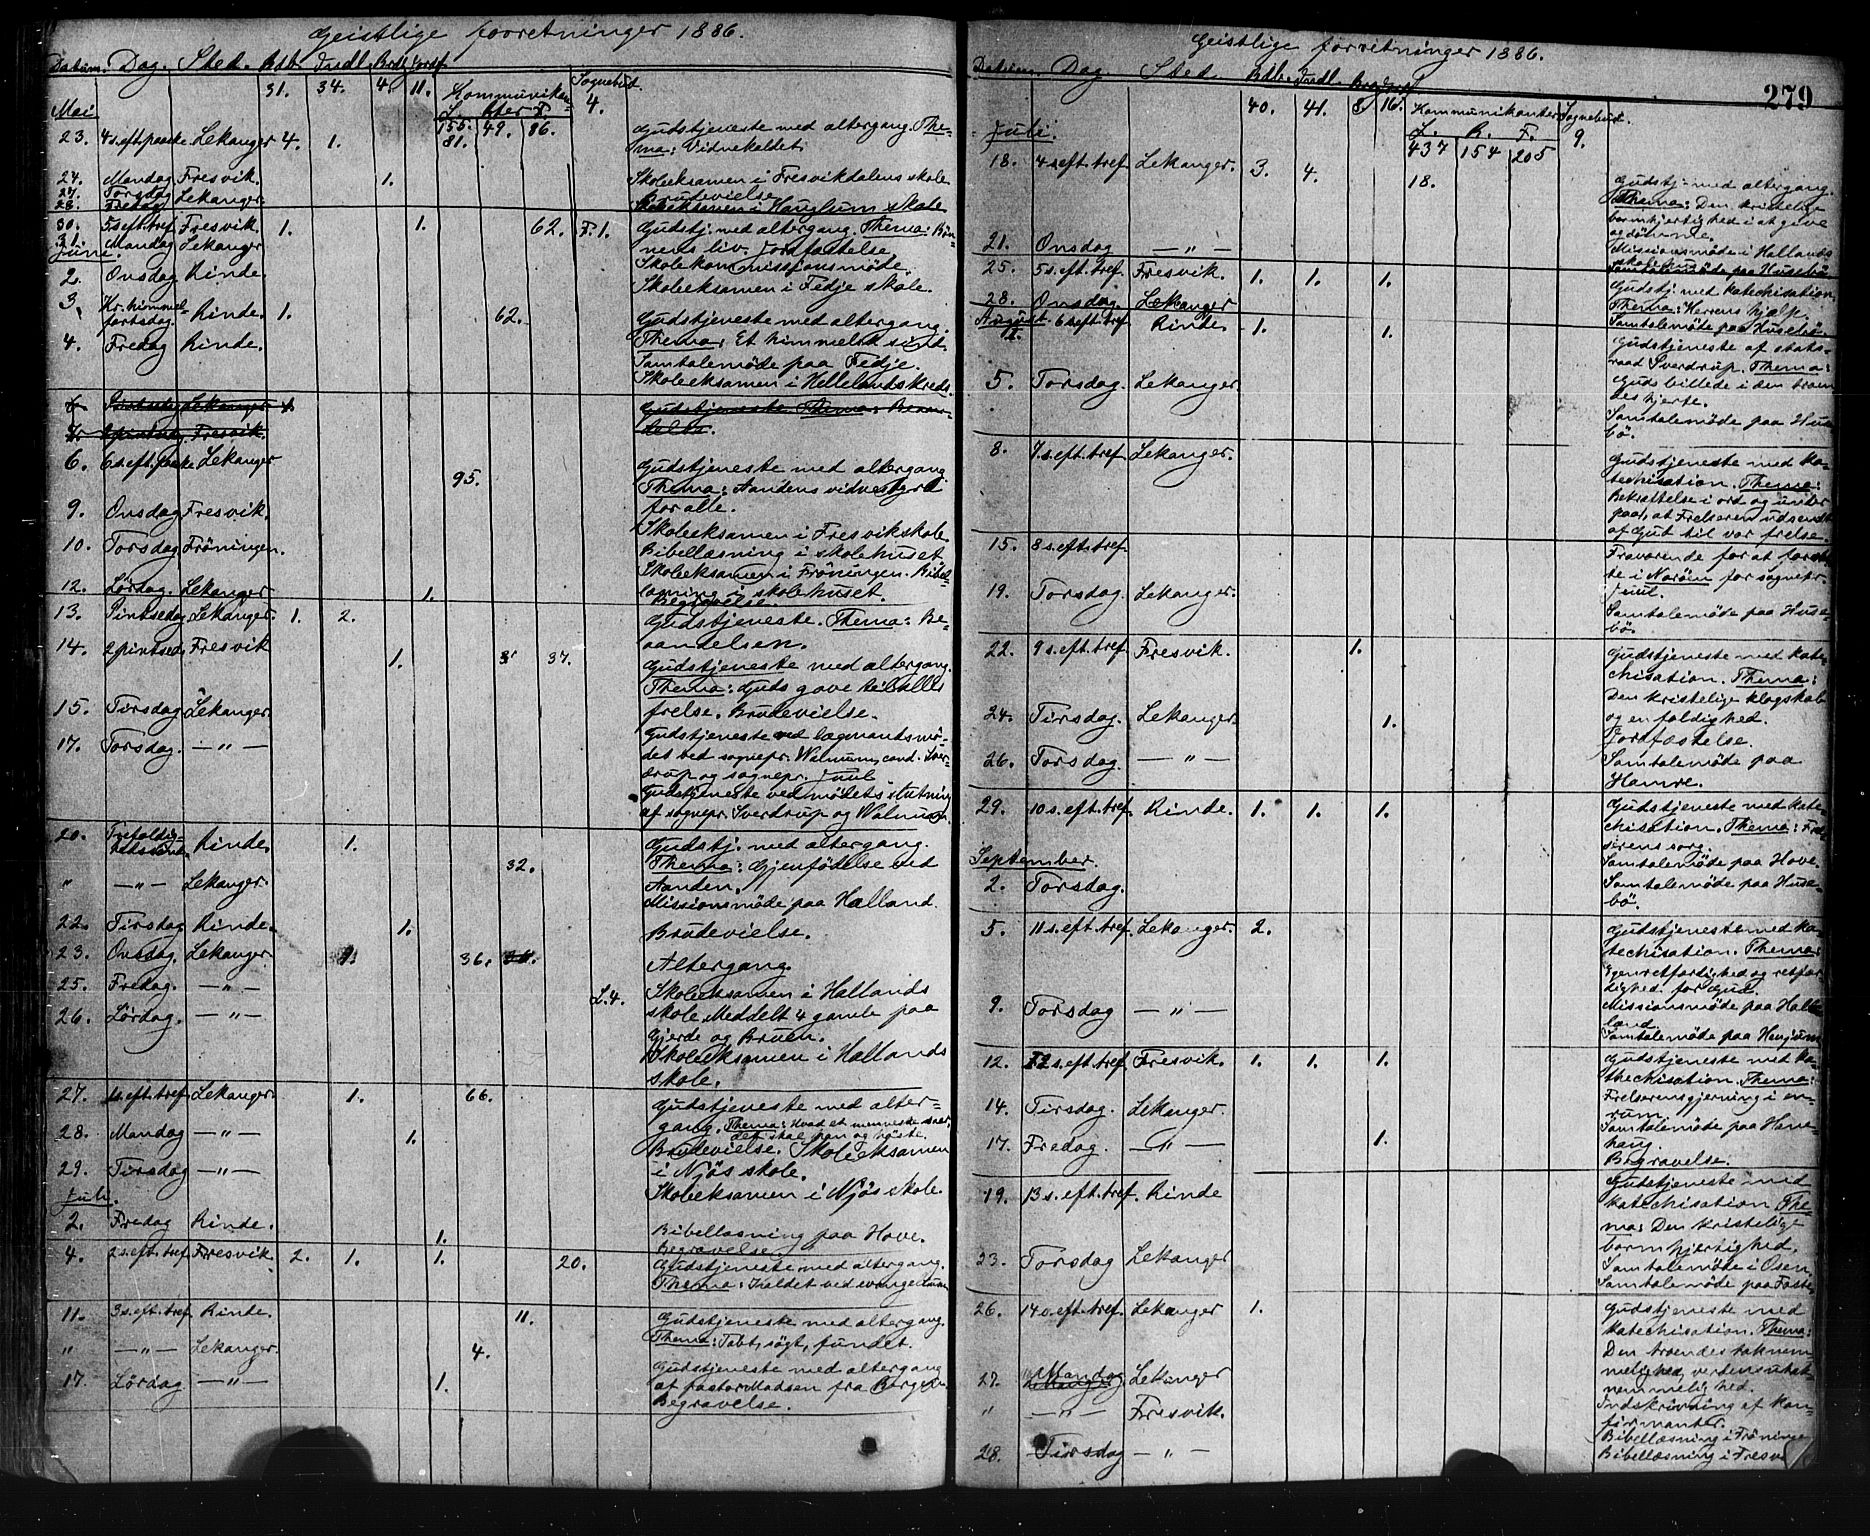 Geistlige forretninger 1886.
Datum. Dag. Sted. Bdb. Indl. Brdv. Jordf.
31. 34. 4. 11. Kommunikanter Sognebud.
L. R. F. 4.
Mai 155. 49. 86.
23. 4 s. eft. paaske Lekanger 4. 1. 81. Gudstjeneste med altergang. The-
ma: Vidnekaldet
24. Mandag Fresvik. 1. Skoleeksamen i Fresvikdalens skole
27. Torsdag Lekanger Brudevielse
28. Fredag Skoleeksamen i Hauglum skole
30. 5 s. eft. Fresvik. 1. 1. 62. F. 1. Gudstj. med altergang. Thema: Bøn-
nens liv. Jordfæstelse.
31. Mandag Lekanger Skolekommissionsmøde.
Juni.
2. Onsdag Rinde. Skoleeksamen i Fedje skole.
3. Kr. himmel-
fartsdag. Rinde. 1. 62. Gudstjeneste med altergang.
Thema: Et himmelsk sind.
4. Fredag Rinde. Samtalemøde paa Fedje.
Skoleeksamen i Hellelandskreds.
Lekanger Gudstjeneste Thema:
2 pintsed. Fresvik.
6. 6 s. eft. paaske Lekanger 95. Gudstjeneste med altergang.
Thema: Aandens vidnesbyrd
for alle.
9. Onsdag Fresvik. Skoleeksamen i Fresvikskole
Bibellæsning i skolehuset
10. Torsdag Frøningen. Skoleeksamen i Frøningen. Bibel-
læsning i skolehuset.
12. Lørdag. Lekanger 1. Begravelse.
13. Pintsedag Lekanger. 1. 2. Gudstjeneste. Thema: Be-
aandelsen.
14. 2 pintsed. Fresvik 1. 37. Gudstjeneste med altergang.
Thema: Guds gave til alles
frelse. Brudevielse.
15. Tirsdag Lekanger. Gudstjeneste ved lægmandsmø-
det ved sognepr. Walnum, cand. Sver-
drup og sognepr. Juul
17. Torsdag. — " — Gudstjeneste ved mødets slutning
af sognepr. Sverdrup og Walnum.
20. Trefoldig-
hedssønd. Rinde. 1. 32. Gudstj. med altergang.
Thema: Gjenfødelse ved
Aanden.
" — " — Lekanger. Missionsmøde paa Hælland.
22. Tirsdag Rinde. 1. Brudevielse.
23. Onsdag. Lekanger 1. 36. Altergang.
25. Fredag. — " — L. 4. Skoleeksamen i Hallands
skole. Meddelt 4 gamle paa
Gjerde og Bruen.
26. Lørdag. — " — Skoleeksamen i Hallands
skole.
27. 1 s. eft. tref. Lekanger. 1. 66. Gudstjeneste med alter-
gang. Thema: Hvad et menneske saar,
det skal han og høste.
28. Mandag — " — 1. Brudevielse. Skoleeksamen
i Njøs skole.
29. Tirsdag — " — Skoleeksamen i Njøs skole.
Juli.
2. Fredag Rinde. 1. Bibellæsning paa Hove.
Begravelse
4. 2 s. eft. tref. Fresvik 2. 1. 1. 20. Gudstjeneste med altergang.
Thema: Kaldet ved evangelium
11. 3 s. eft. tref. Rinde. 11. Gudstjeneste med altergang.
Thema: Tabt, søgt, fundet.
" — " — Lekanger. 4. Gudstjeneste med altergang
af pastor Madsen fra Bergen.
17. Lørdag — " — 1. Begravelse.
Geistlige forretninger 1886.
279
Datum. Dag. Sted. Bdb. Indl. Brdv. Jordf.
40. 41. 8. 16. Kommunikanter Sognebud.
L. R. F. 9.
Juli. 437 154 205
18. 4 s. eft. tref. Lekanger 3. 4. 18. Gudstj. med altergang.
Thema: Den kristelige
barmhjertighed i at give
og dømme.
21. Onsdag — " — Missionsmøde i Hallands
skolehus
Samtalemøde paa Husebø
25. 5 s. eft. tref. Fresvik. 1. 1. 1. Gudstj. med katechisation
Thema: Herrens hjælp.
28. Onsdag. Lekanger Samtalemøde paa Husebø
August
1. 6 s. eft. tref. Rinde. 1. 1. Gudstjeneste af stats-
raad Sverdrup. Thema:
Guds billede i den troen-
des hjerte.
5. Torsdag. Lekanger. Samtalemøde paa Huse-
bø.
8. 7. s. eft. tref. Lekanger. Gudstjeneste med ka-
techisation. Thema:
Bekræftelse i ord og under
paa, at Frelseren udsendt
af Gud til vor frelse.
15. 8 s. eft. tref. Fraværende for at forret-
te i Norøen for sognepr.
Juul.
19. Torsdag. Lekanger. Samtalemøde paa Huse-
bø.
22. 9 s. eft. tref. Fresvik. 1. Gudstjeneste med kate-
chisation. Thema:
Den kristelige klogskab
og enfoldighed.
24. Tirsdag. Lekanger. 1. Jordfæstelse.
26. Torsdag. — " — Samtalemøde paa
Hamre.
29. 10 s. eft. tref. Rinde. 1. 1. 1. Gudstjeneste med kate-
chisation. Thema: Frel-
serens sorg.
Samtalemøde paa Hove.
September.
2. Torsdag. Samtalemøde paa Huse-
bø.
5. 11 s. eft. tref. Lekanger. 2. Gudstjeneste med ka-
techisation. Thema:
Egenretfærdighed og retfær-
dighed for Gud.
Missionsmøde paa Hal-
land
9. Torsdag — " — Samtalemøde paa Henjum
12. 12 s. eft. tref. Fresvik. 1. 1. 1. Gudstjeneste med ka-
thechisation. Thema:
Frelserens gjerning i en-
rum.
14. Tirsdag. Lekanger. Samtalemøde paa Hane-
haug.
17. Fredag. — " — 1. Begravelse.
19. 13 s. eft. tref. Rinde Gudstjeneste med
katechisation The-
ma: Den kristelige
barmhjertighed.
Samtalemøde i Osen,
23. Torsdag Lekanger Samtalemøde paa
26. 14 s. eft. tref. Lekanger 1. Gudstjeneste med
katechisation. Thema:
Den troendes taknem-
melighed, verdens utak-
nemmelighed.
27. Mandag Lekanger Indskrivning af kon-
firmanter.
" — " — Fresvik. Bibellæsning i Frøninge
28. Tirsdag — " — Bibellæsning i Fresvi